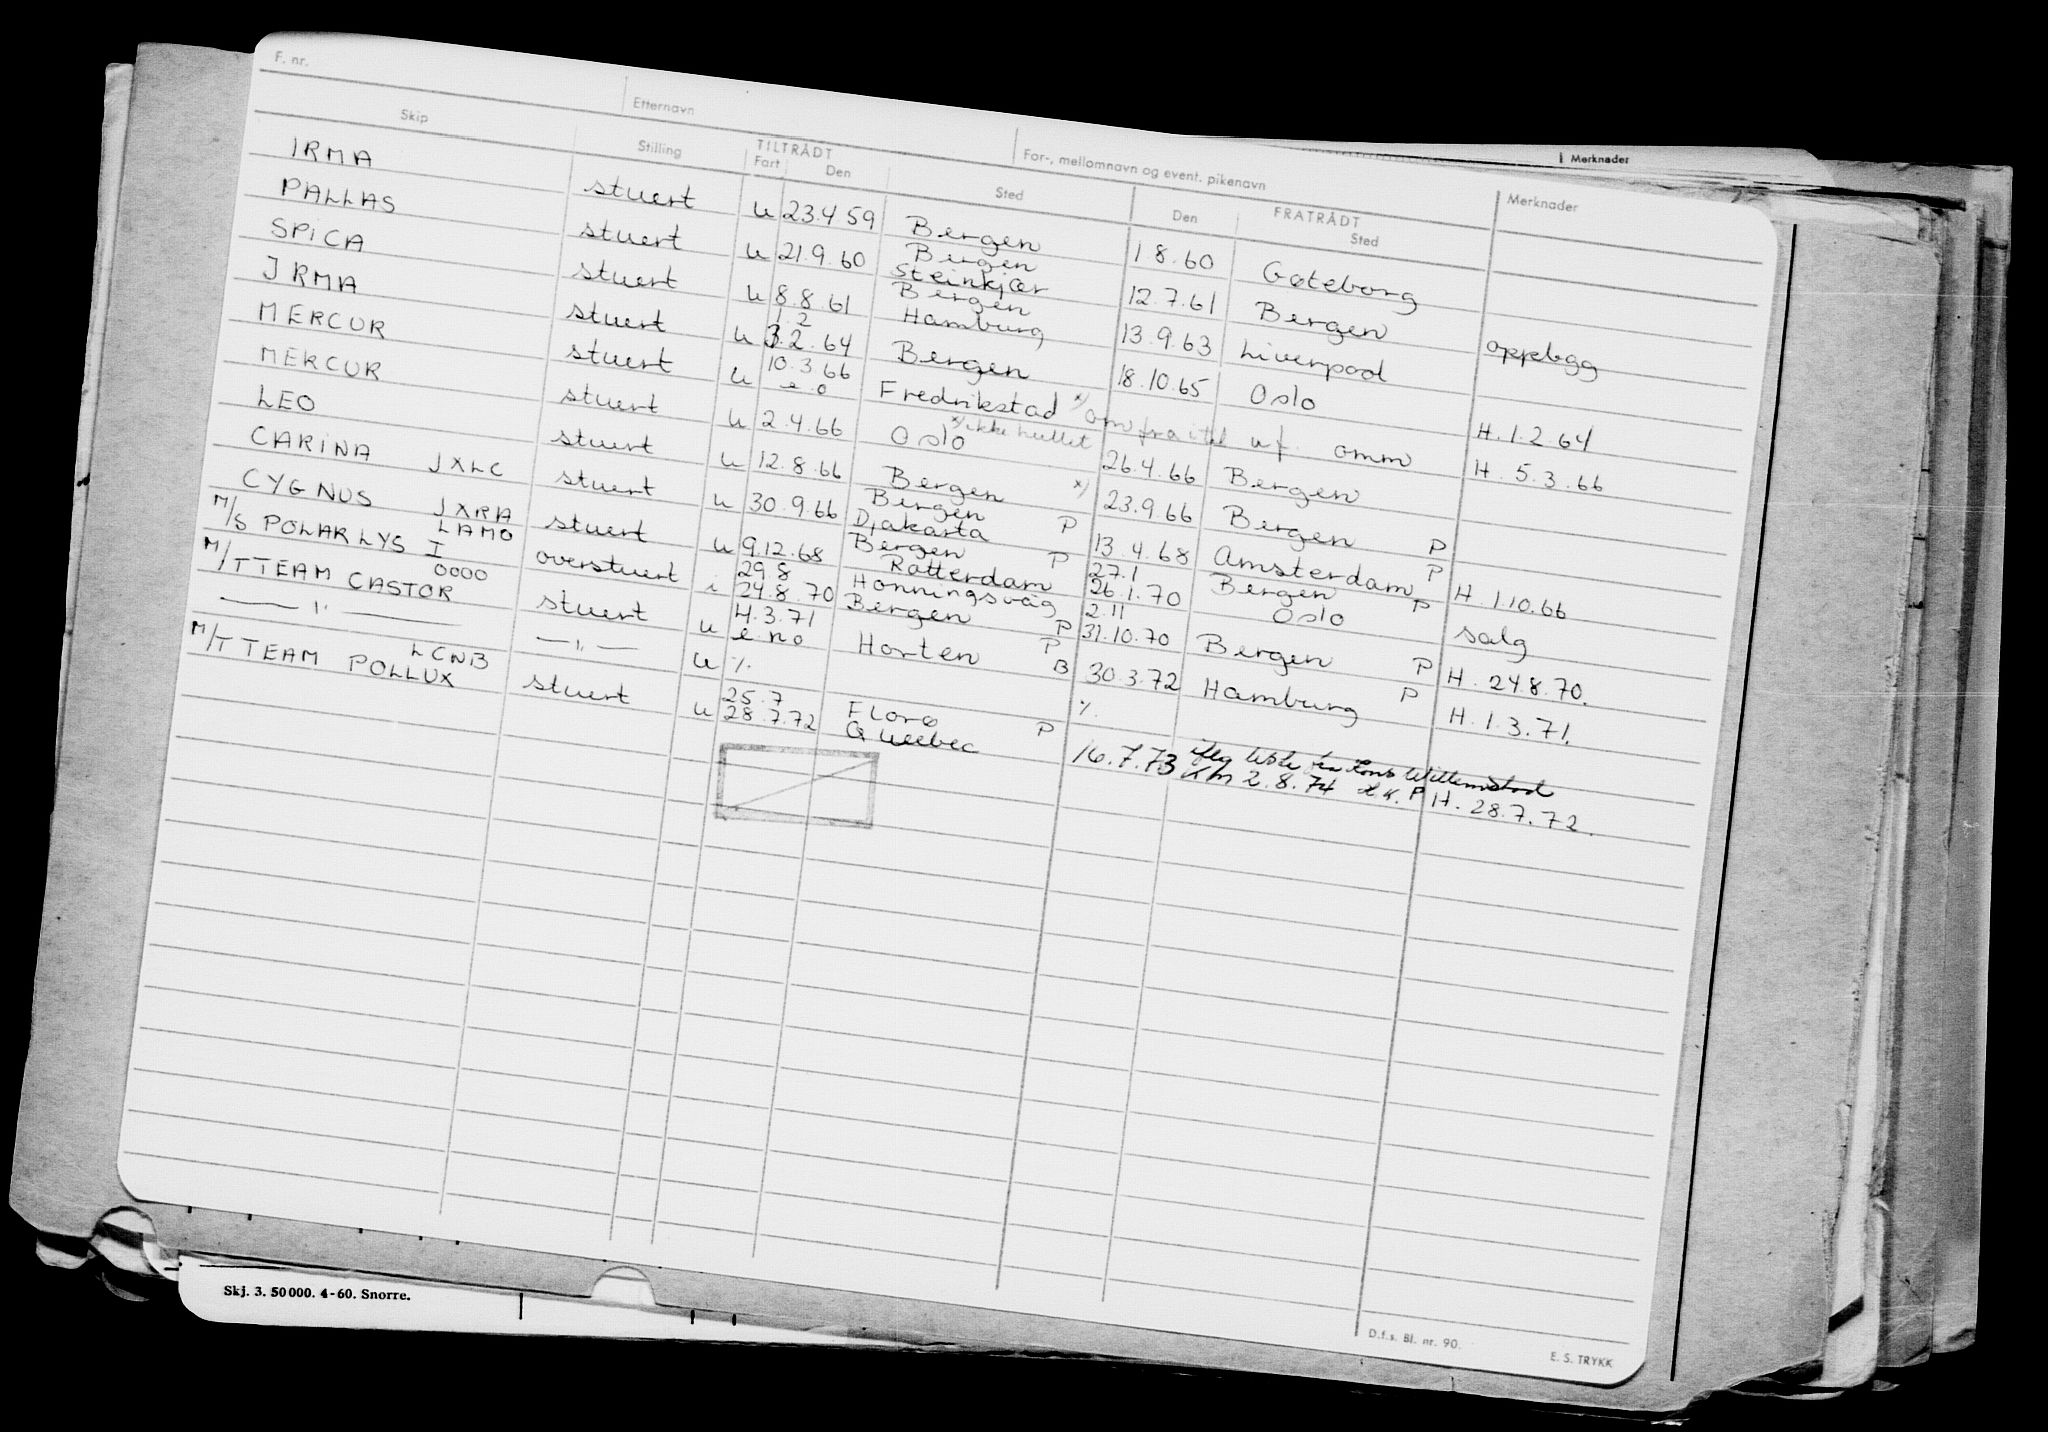 F. nr.
Etternavn
For-, mellomnavn og event. pikenavn
Merknader
Skip Stilling TILTRÅDT Fart Den Sted FRATRÅDT Den Sted Merknader
IRMA stuert u 23.4 59 Bergen 1 8.60 Gøteborg
PALLAS stuert u 21.9.60 Bergen 12.7.61 Bergen oppbgg
Steinkjær
SPICA stuert u 8.8.61 Bergen 13.9.63 Liverpool
1 2 Hamburg
IRMA stuert u 3.2.64 Bergen 18.10.65 Oslo H.1.2 64
10.3 66
MERCUR stuert u e.o Fredrikstad *) omm H. 5.3.66
*) ikke hullet
MERCUR stuert u 2.4.66 Oslo 26.4.66 Bergen
LEO stuert u 12.8.66 Bergen *) 23.9.66 Bergen P
Bergen P
CARINA JXLC stuert u 30.9.66 Djakarta 13.4.68 Amsterdam P H.1.10.66
Bergen P 27.1 Bergen P
CYGNUS JXRA stuert u 9.12.68 Rotterdam 26.1.70 Oslo salg
LAMO 29.8 Honningsvåg P 2.11
M/S POLARLYS I overstuert i 24.8.70 Bergen P 31.10.70 Bergen P H. 24.8.70.
OOOO 4.3.71
M/T TEAM CASTOR stuert u e.no Horten B 30.3.72 Hamburg P H.1.3.71.
— " — — " — u %. %.
LCNB 25.7 Florø P
M/T TEAM POLLUX stuert u 28.7.72 Quebec 16.7.73 iflg liste fra Kons Willemstad
2.8.74 P H. 28.7.72.
Skj. 3. 50 000. 4-60. Snorre.
D.f.s. Bl. nr. 90.
E. S. TRYKK